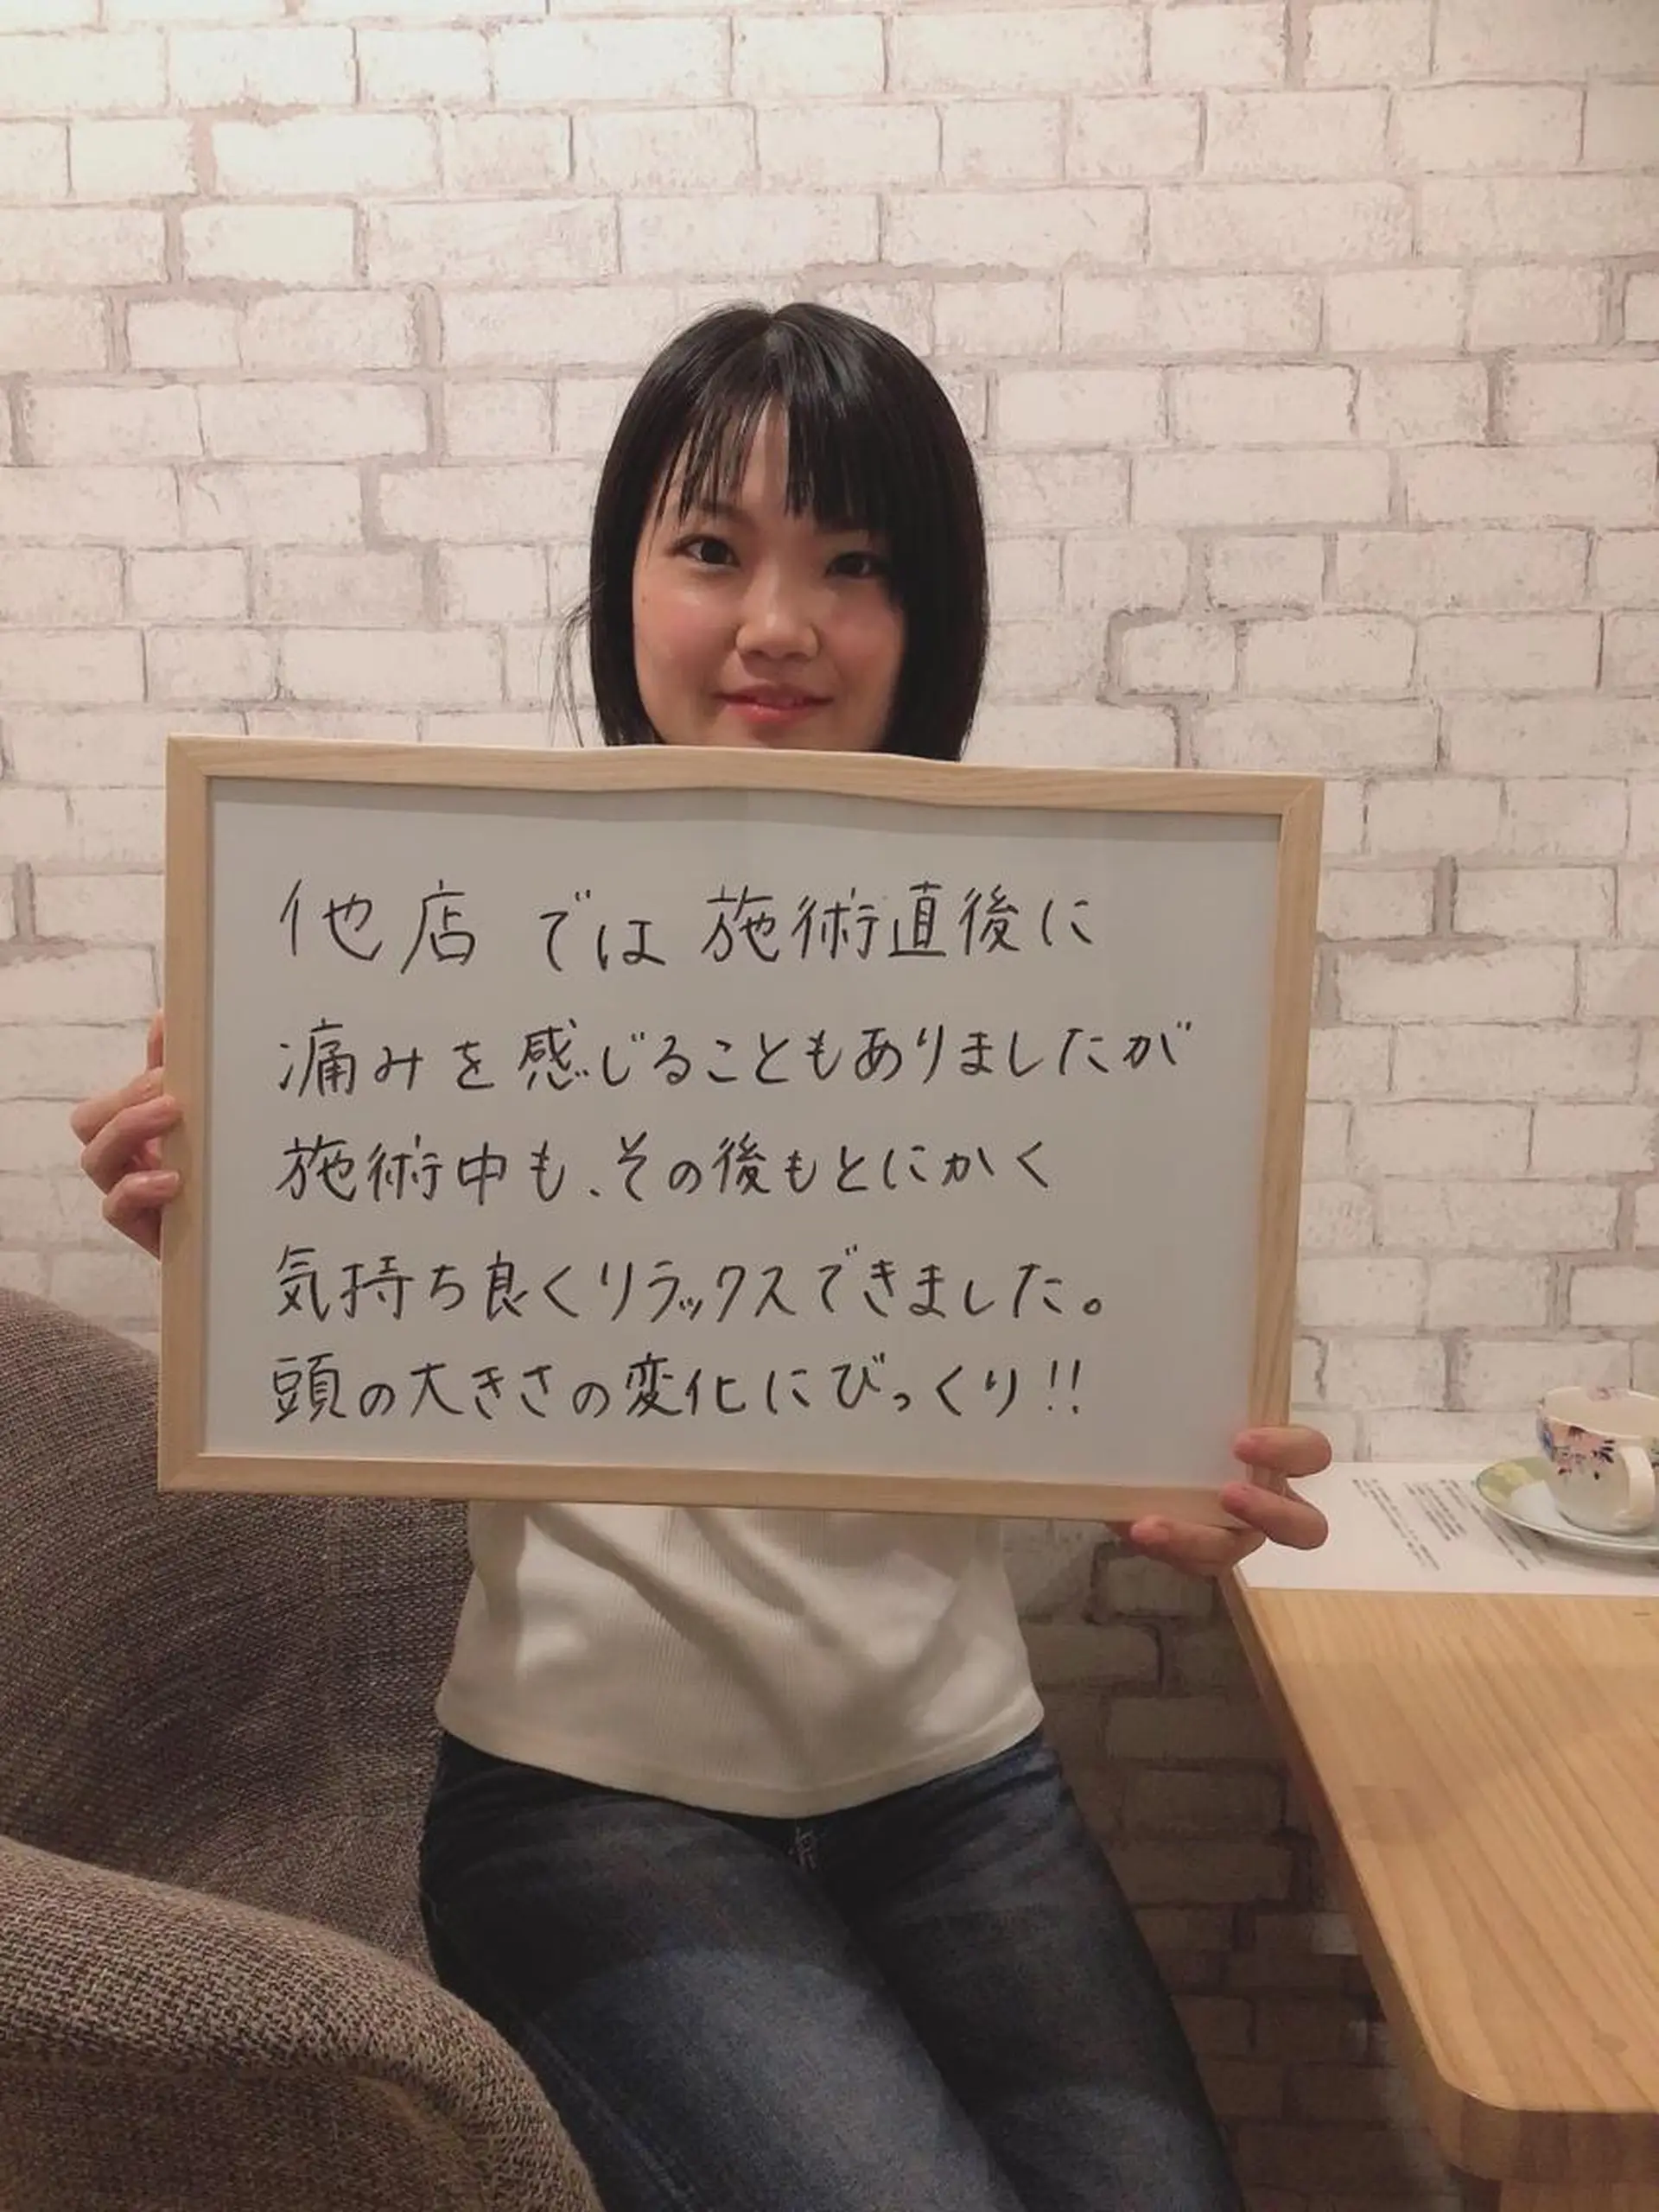 他店では施術直後に
痛みを感じることもありましたが
施術中も、その後もとにかく
気持ち良くリラックスできました。
頭の大きさの変化にびっくり!!